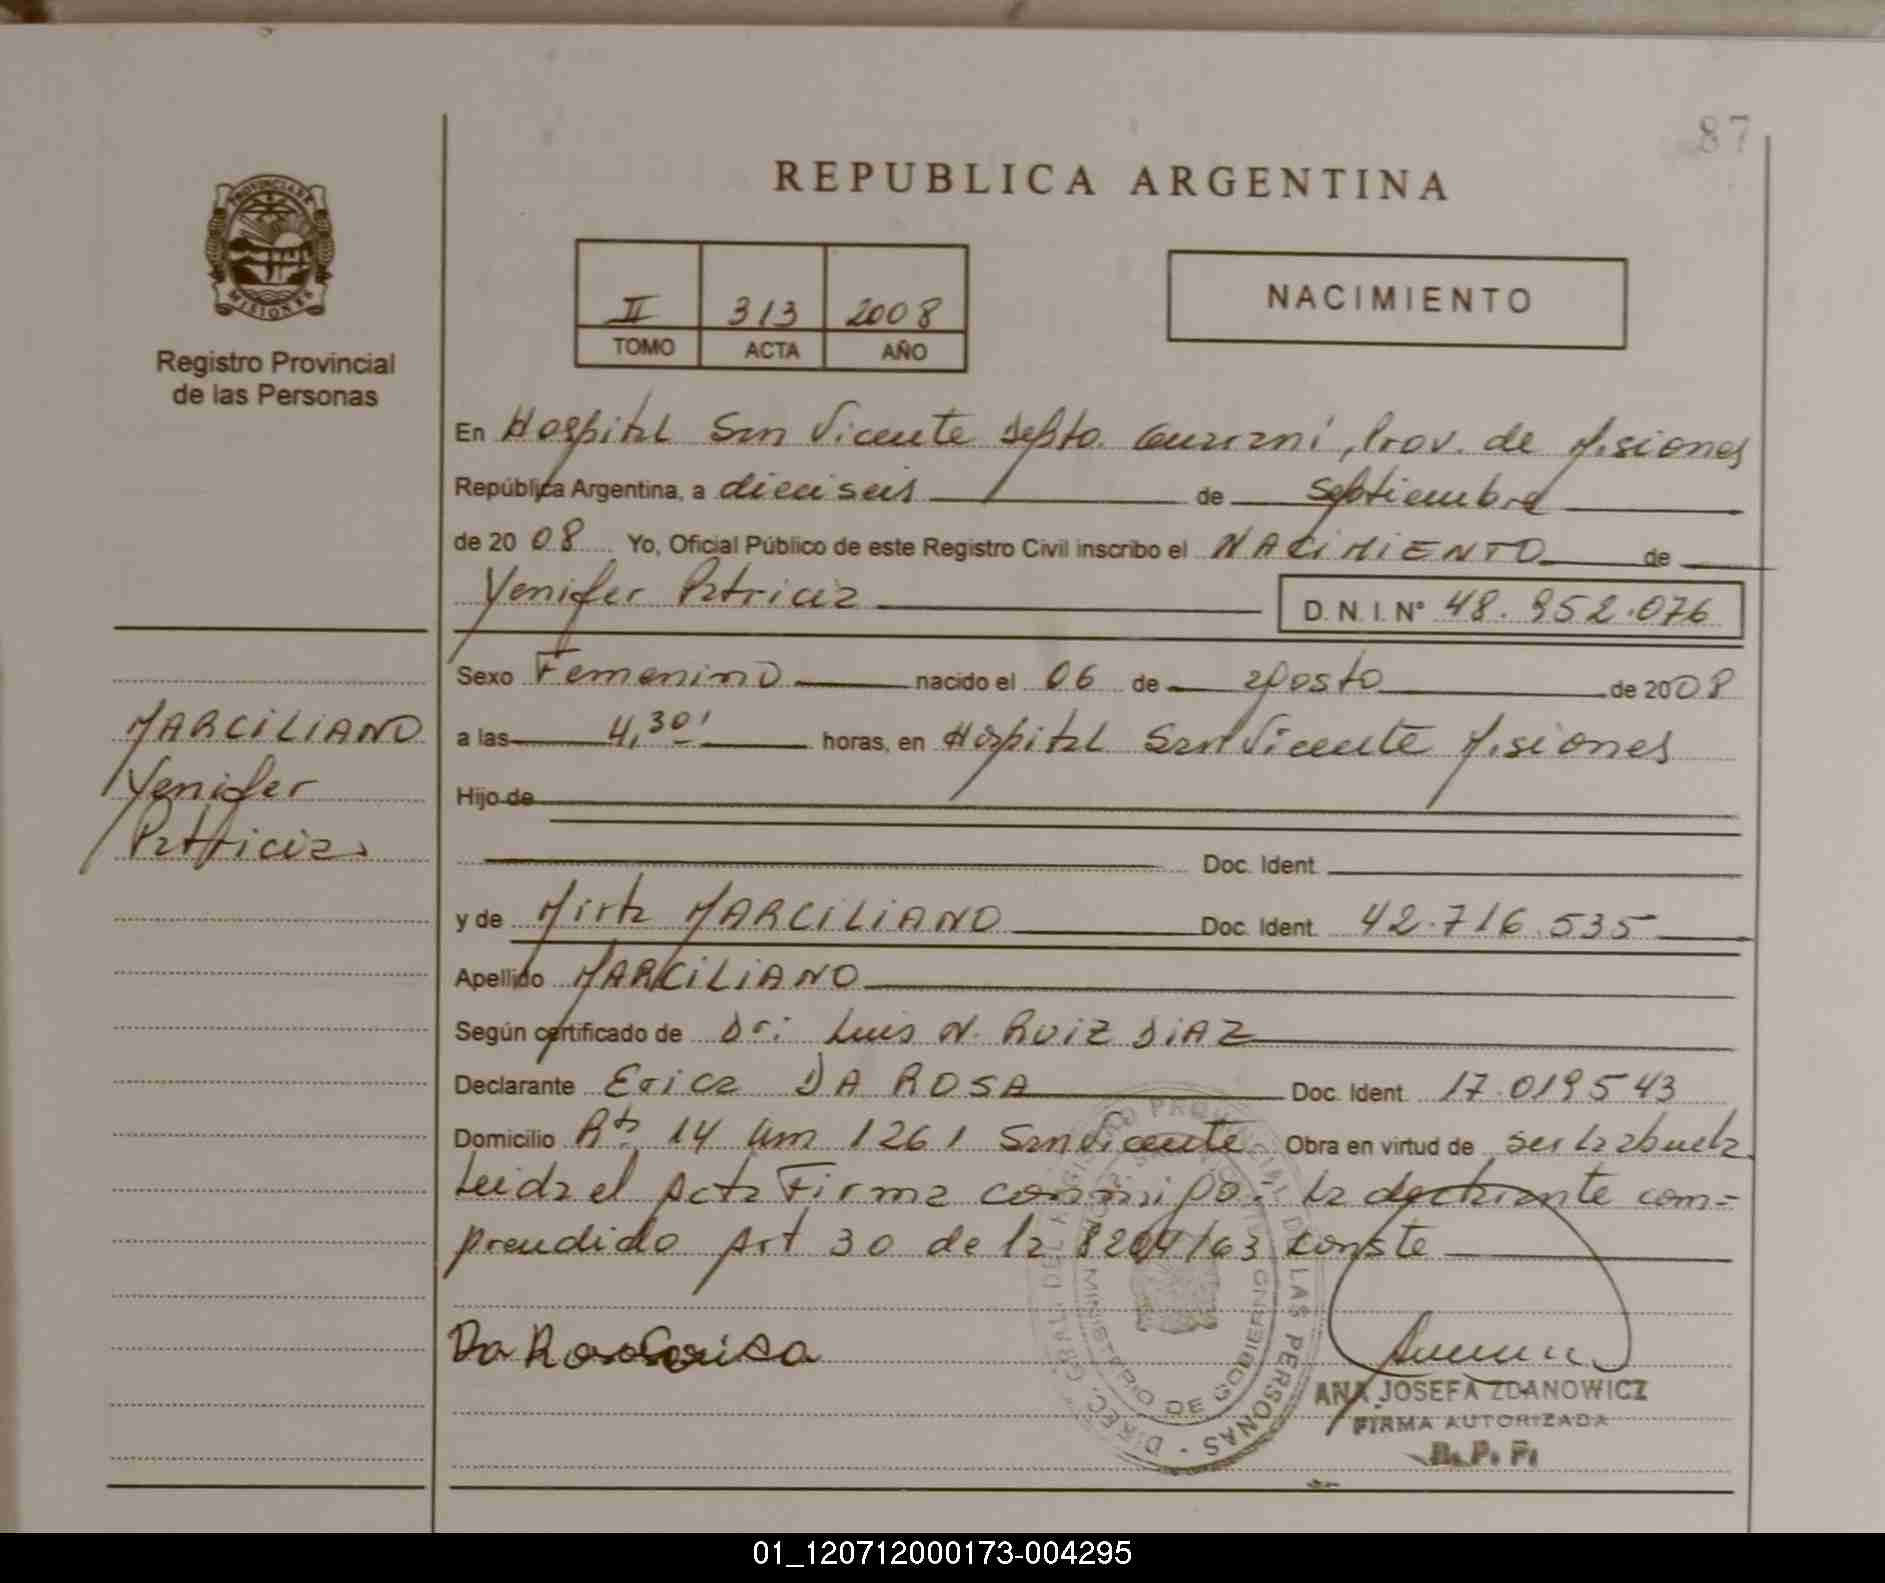 87
REPUBLICA ARGENTINA
PROVINCIA DE
MISIONES
Registro Provincial
de las Personas
II 313 2008
TOMO ACTA AÑO
NACIMIENTO
En Hospital San Vicente Depto. Guaraní, Prov. de Misiones
República Argentina, a dieciseis de Septiembre
de 2008 Yo, Oficial Público de este Registro Civil inscribo el NACIMIENTO de
Yenifer Patricia D. N. I. N° 48.952.076
Sexo Femenino nacido el 06 de agosto de 2008
MARCILIANO
Yenifer
Patricia
a las 4,30' horas, en Hospital San Vicente Misiones
Hijo de
Doc. Ident.
y de Mirta MARCILIANO Doc. Ident. 42.716.535
Apellido MARCILIANO
Según certificado de Dr: Luis N. RUIZ DIAZ
Declarante Erica DA ROSA Doc. Ident. 17.019543
Domicilio Rta 14 Km 1261 San Vicente Obra en virtud de ser la abuela
Leida el Acta Firma conmigo la declarante com=
prendido Art 30 de la 8204/63 conste
DIREC. GRAL. DEL REGISTRO PROVINCIAL DE LAS PERSONAS
MINISTERIO DE GOBIERNO
Da Rosa Erica
ANA JOSEFA ZDANOWICZ
FIRMA AUTORIZADA
R. P. P.
01_120712000173-004295